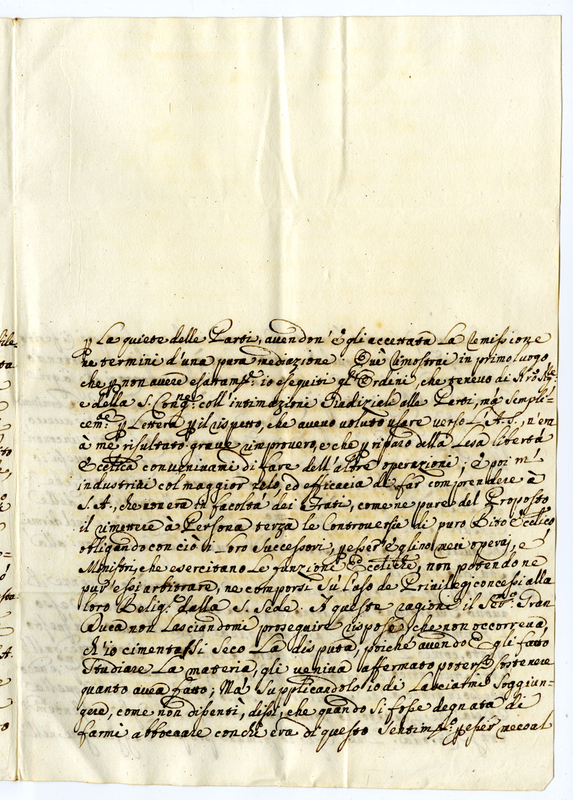 p. la quiete delle Parti, avendon'egli accettata la remissione
ne termini d'una pura mediazione. Qui rimostrai in primo luogo
che p. non avere esattamte. io eseguiti gl'Ordini, che tenevo di
e della S. Congne. coll'intimazioni Giudiziali alle Parti, ma sempli-
cemte. p. Lettera p. il rispetto, che avevo voluto usare verso l'A.S., n'era
à me risultato grave rimprovero, e che p. riparo della lesa libertà
Ecclica convenivami di fare dell'altre operazioni; e poi m'
industriai col maggior zelo, ed efficacia di far comprendere à
S.A., che non era in facoltà dei Frati, come ne pure del Proposto
il rimettere à Persona terza le Controversie di puro Dirito Ecclico
obligando con ciò i Loro Successori, p. esser eglino meri operaj, e
Ministri, che esercitano le funzioni Ecclictiche, non potendone
pur essi arbitrare, ne comporsi sù l'uso de Privilegj concessi alla
loro Religne. dalla S. Sede. A queste ragioni il Sermo. Gran
Duca non lasciandomi proseguire rispose, che non occorreva,
ch'io cimentassi seco la disputa, poiché avendo Egli fatto
studiare la materia, gli veniva affermato potersi sostenere
quanto avea fatto; Mà supplicandolo io di lasciarmi soggiun-
gere, come non disentì, dissi, che quando si fosse degnata di
farmi abboccare con chi era di questo sentimto. p. esser